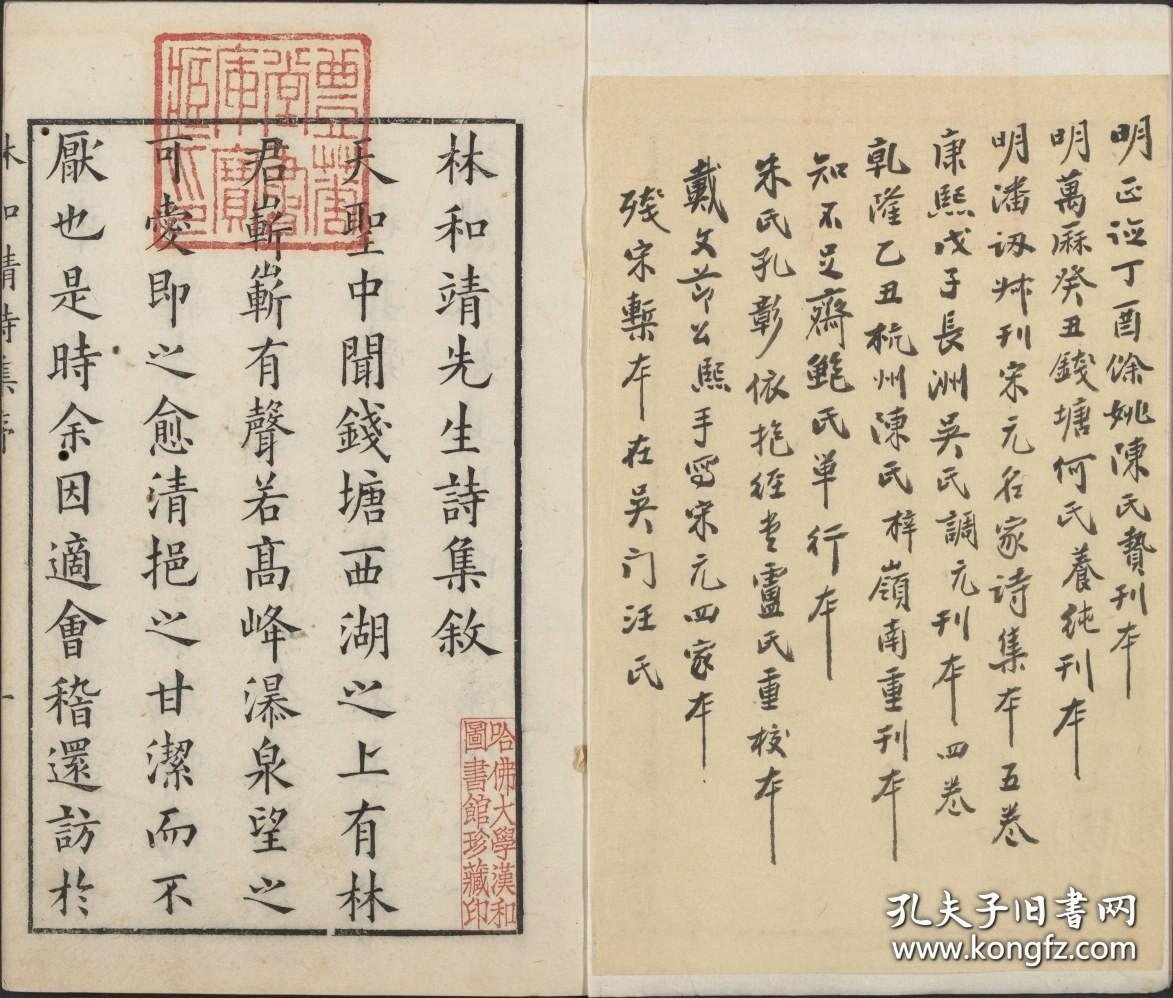 明正德丁酉餘姚陳氏贄刊本
明萬厤癸丑錢塘何氏養純刊本
明潘訒叔刊宋元名家诗集本五卷
康熙戊子長洲吳氏調元刊本四卷
乾隆乙丑杭州陳氏梓嶺南重刊本
知不足齋鮑氏单行本
朱氏孔彰依抱经堂盧氏重校本
戴文节公熙手寫宋元四家本
殘宋槧本在吳门汪氏
林和靖先生詩集敘
天聖中聞錢塘西湖之上有林
君嶄嶄有聲若髙峰瀑泉望之
可愛即之愈清挹之甘潔而不
厭也是時余因適會稽還訪於
林和靖詩集序
一
哈佛大學漢和
圖書館珍藏印
孔夫子旧书网
www.kongfz.com